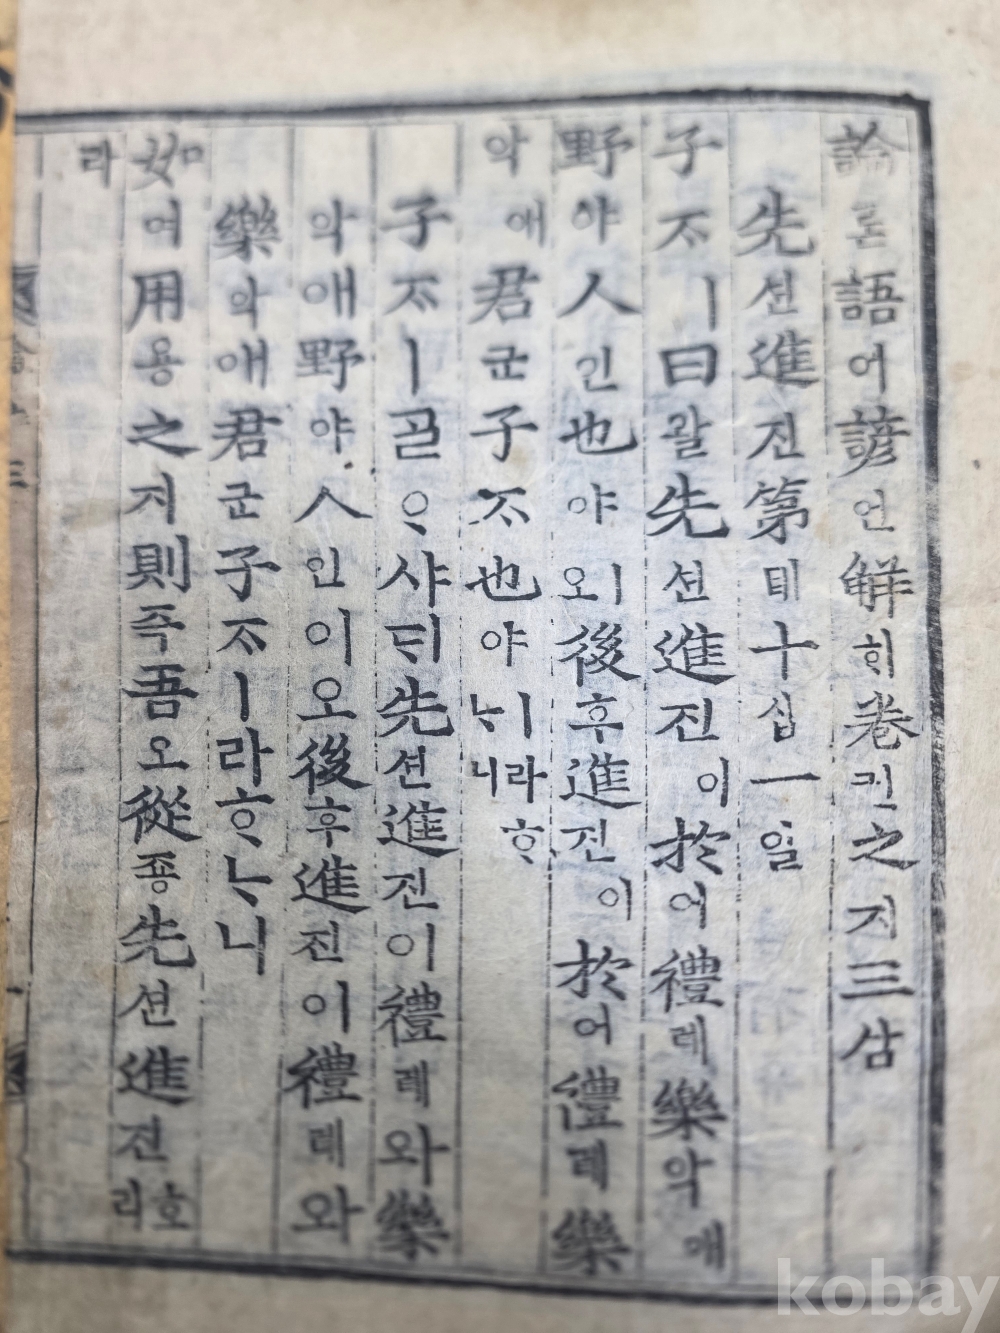 論론語어諺언解ᄒᆡ卷권之지三삼
先션進진第뎨十십一일
子ᄌᆞㅣ曰왈先션進진이於어禮례樂악애
野야人인也야오ㅣ後후進진이於어禮례樂
악애君군子ᄌᆞ也야ㅣ라ᄒᆞᄂᆞ니
子ᄌᆞㅣ골ᄋᆞ샤ᄃᆡ先션進진이禮례와樂
악애野야人인이오後후進진이禮례와
樂악애君군子ᄌᆞㅣ라ᄒᆞᄂᆞ니
如여用용之지則즉吾오從죵先션進진호리
라
kobay